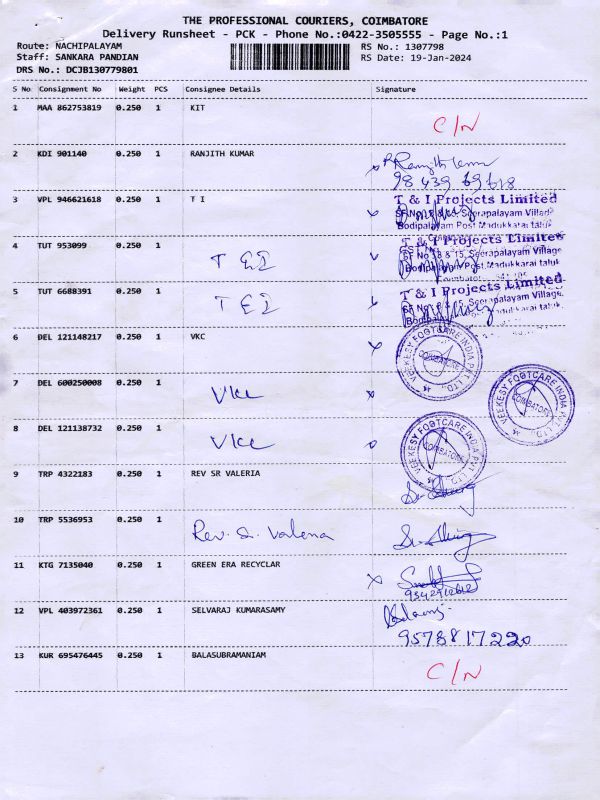 THE PROFESSIONAL COURIERS, COIMBATORE
Delivery Runsheet - PCK - Phone No.:0422-3505555 - Page No.:1
Route: NACHIPALAYAM RS No.: 1307798
Staff: SANKARA PANDIAN RS Date: 19-Jan-2024
DRS No.: DCJB130779801
S No Consignment No Weight PCS Consignee Details Signature
1 MAA 862753819 0.250 1 KIT C/N
2 KDI 901140 0.250 1 RANJITH KUMAR
3 VPL 946621618 0.250 1 T I T & I Projects Limited
SF No. 8 & 15, Seerapalayam Village
Bodipalayam Post Madukkarai taluk
4 TUT 953099 0.250 1 T & I T & I Projects Limited
SF No 8 & 15, Seerapalayam Village
Bodipalayam Post, Madukkarai taluk
5 TUT 6688391 0.250 1 T & I T & I Projects Limited
SF No 8 & 15, Seerapalayam Village,
Madukkarai taluk
6 DEL 121148217 0.250 1 VKC VEEKESY FOOTCARE INDIA PVT. LTD. COIMBATORE
7 DEL 600250008 0.250 1 Vkc VEEKESY FOOTCARE INDIA PVT. LTD. COIMBATORE
8 DEL 121138732 0.250 1 Vkc VEEKESY FOOTCARE INDIA PVT. LTD. COIMBATORE
9 TRP 4322183 0.250 1 REV SR VALERIA
10 TRP 5536953 0.250 1 Rev. Sr. Valeria
11 KTG 7135040 0.250 1 GREEN ERA RECYCLAR
12 VPL 403972361 0.250 1 SELVARAJ KUMARASAMY
9578817220
13 KUR 695476445 0.250 1 BALASUBRAMANIAM C/N